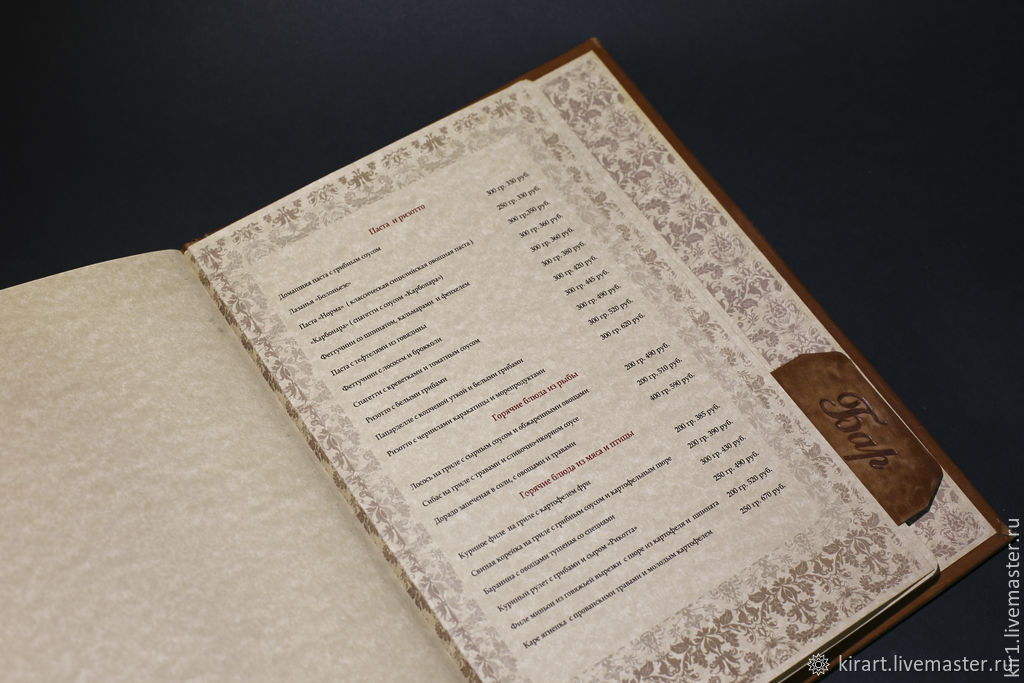 Паста и ризотто
Домашняя паста с грибным соусом 300 гр. 330 руб.
Лазанья «Болоньезе» 250 гр. 330 руб.
Паста «Норма» ( классическая сицилийская овощная паста ) 300 гр.350 руб.
«Карбонара» ( спагетти с соусом «Карбонара») 300 гр. 360 руб.
Феттучини со шпинатом, кальмарами и фенхелем 300 гр. 360 руб.
Паста с тефтелями из говядины 300 гр. 380 руб.
Феттучини с лососем и брокколи 300 гр. 420 руб.
Спагетти с креветками и томатным соусом 300 гр. 445 руб.
Ризотто с белыми грибами 300 гр. 490 руб.
Папарделле с копченой уткой и белыми грибами 300 гр. 520 руб.
Ризотто с чернилами каракатицы и морепродуктами 300 гр. 620 руб.
Горячие блюда из рыбы
Лосось на гриле с сырным соусом и обжаренными овощами 200 гр. 490 руб.
Сибас на гриле с травами и сливочно-икорном соусе 200 гр. 510 руб.
Дорадо запеченая в соли, с овощами и травами 400 гр. 590 руб.
Горячие блюда из мяса и птицы
Куриное филе на гриле с картофелем фри 200 гр. 385 руб.
Свиная корейка на гриле с грибным соусом и картофельным пюре 200 гр. 390 руб.
Баранина с овощами тушеная со специями 300 гр. 430 руб.
Куриный рулет с грибами и сыром «Рикотта» 250 гр. 490 руб.
Филе миньон из говяжьей вырезки с пюре из картофеля и шпината 200 гр. 520 руб.
Каре ягненка с прованскими травами и молодым картофелем 250 гр. 670 руб.
Бар
kirart.livemaster.ru
kir1.livemaster.ru